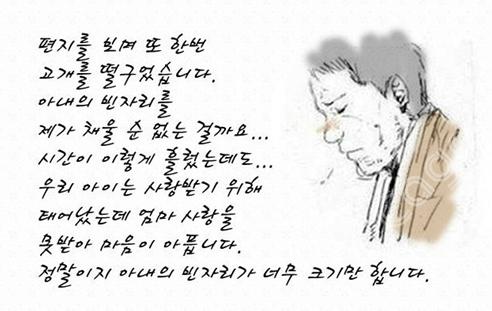 편지를 보며 또 한번
고개를 떨구었습니다.
아내의 빈자리를
제가 채울 순 없는 걸까요...
시간이 이렇게 흘렀는데도...
우리 아이는 사랑받기 위해
태어났는데 엄마 사랑을
못받아 마음이 아픕니다.
정말이지 아내의 빈자리가 너무 크기만 합니다.